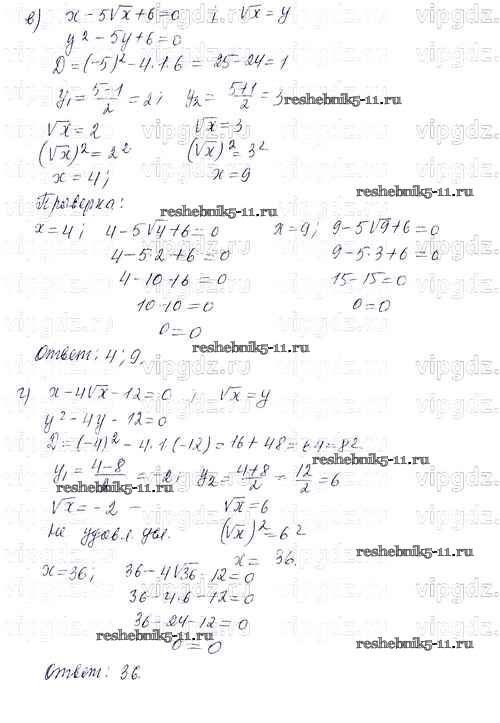 в) x - 5√x + 6 = 0 ; √x = y
y² - 5y + 6 = 0
D = (-5)² - 4·1·6 = 25 - 24 = 1
y₁ = (5-1)/2 = 2; y₂ = (5+1)/2 = 3
reshebnik5-11.ru
√x = 2 √x = 3
(√x)² = 2² (√x)² = 3²
x = 4; x = 9
Проверка:
reshebnik5-11.ru
x = 4; 4 - 5√4 + 6 = 0 x = 9; 9 - 5√9 + 6 = 0
4 - 5·2 + 6 = 0 9 - 5·3 + 6 = 0
4 - 10 + 6 = 0 15 - 15 = 0
10 - 10 = 0 0 = 0
0 = 0
reshebnik5-11.ru
Ответ: 4; 9.
г) x - 4√x - 12 = 0 ; √x = y
y² - 4y - 12 = 0
D = (-4)² - 4·1·(-12) = 16 + 48 = 64 = 8²
reshebnik5-11.ru
y₁ = (4-8)/2 = -2; y₂ = (4+8)/2 = 12/2 = 6
reshebnik5-11.ru
√x = -2 - √x = 6
не удовл. усл. (√x)² = 6²
x = 36.
reshebnik5-11.ru
x = 36; 36 - 4√36 - 12 = 0
36 - 4·6 - 12 = 0
36 - 24 - 12 = 0
reshebnik5-11.ru
0 = 0
reshebnik5-11.ru
Ответ: 36.